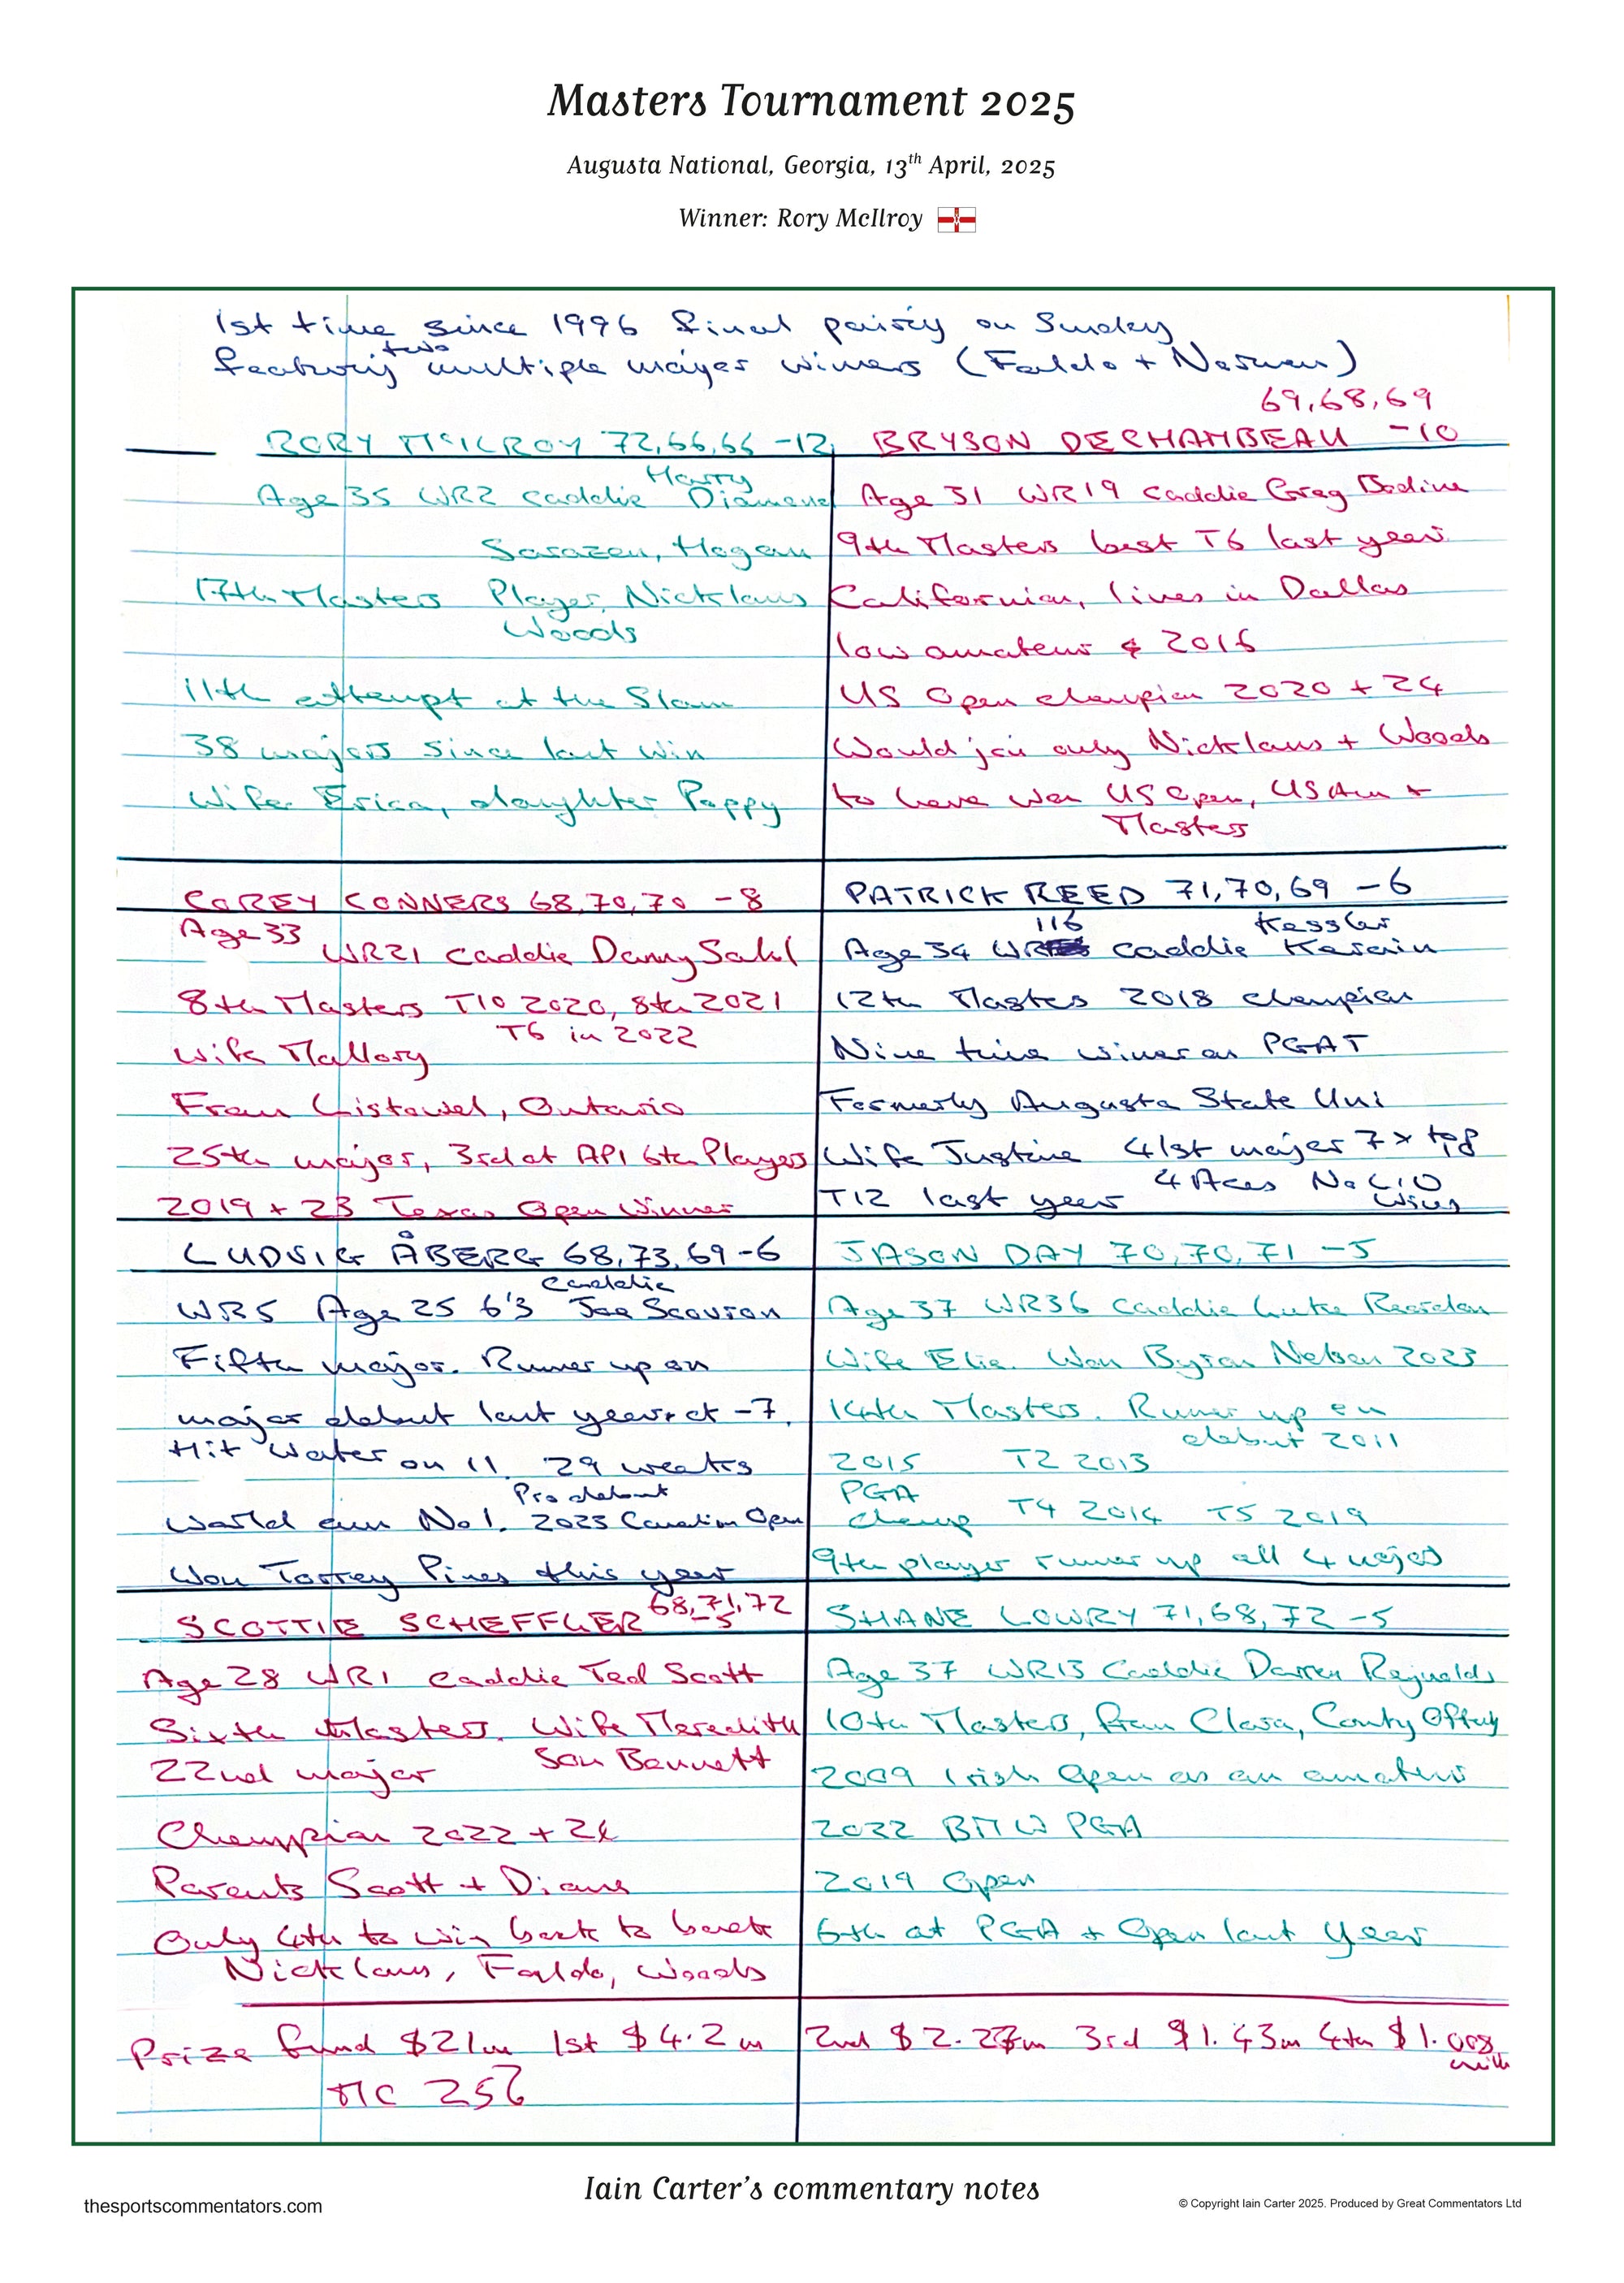 Masters Tournament 2025
Augusta National, Georgia, 13th April, 2025
Winner: Rory McIlroy
1st time since 1996 final pairing on Sunday
featuring two multiple major winners (Faldo + Norman)
RORY McILROY 72,66,66 -12
Age 35 WR2 caddie Harry Diamond
Sarazen, Hogan
17th Masters Player, Nicklaus
Woods
11th attempt at the Slam
38 majors since last win
Wife Erica, daughter Poppy
69,68,69
BRYSON DECHAMBEAU -10
Age 31 WR19 caddie Greg Bodine
9th Masters best T6 last year
Californian, lives in Dallas
low amateur 2016
US Open champion 2020 + 24
Would join only Nicklaus + Woods
to have won US Open, US Am +
Masters
COREY CONNERS 68,70,70 -8
Age 33
WR21 caddie Danny Sahl
8th Masters T10 2020, 8th 2021
T6 in 2022
Wife Mallory
From Listowel, Ontario
25th major, 3rd at API 6th Players
2019 + 23 Texas Open Winner
PATRICK REED 71,70,69 -6
116 Kessler
Age 34 WR caddie Karain
12th Masters 2018 champion
Nine time winner on PGAT
Formerly Augusta State Uni
Wife Justine 41st major 7 x top
T12 last year 4 Aces No LIV
wins
LUDVIG ÅBERG 68,73,69 -6
caddie
WR5 Age 25 6'3 Joe Scovron
Fifth major. Runner up on
major debut last year at -7.
Hit water on 11. 29 weeks
Pro debut
World am No1. 2023 Canadian Open
Won Torrey Pines this year
JASON DAY 70,70,71 -5
Age 37 WR36 caddie Luke Reardon
Wife Ellie. Won Byron Nelson 2023
14th Masters. Runner up on
debut 2011
2015 T2 2013
PGA
Champ T4 2014 T5 2019
9th player runner up all 4 majors
SCOTTIE SCHEFFLER 68,71,72
-5
Age 28 WR1 caddie Ted Scott
Sixth Masters. Wife Meredith
Son Bennett
22nd major
Champion 2022 + 24
Parents Scott + Diane
Only 4th to win back to back
Nicklaus, Faldo, Woods
SHANE LOWRY 71,68,72 -5
Age 37 WR13 Caddie Darren Reynolds
10th Masters, from Clara, County Offaly
2009 Irish Open as an amateur
2022 BMW PGA
2019 Open
6th at PGA + Open last year
Prize fund $21m 1st $4.2m 2nd $2.27m 3rd $1.43m 4th $1.008
mill
MC 256
Iain Carter's commentary notes
thesportscommentators.com
© Copyright Iain Carter 2025. Produced by Great Commentators Ltd